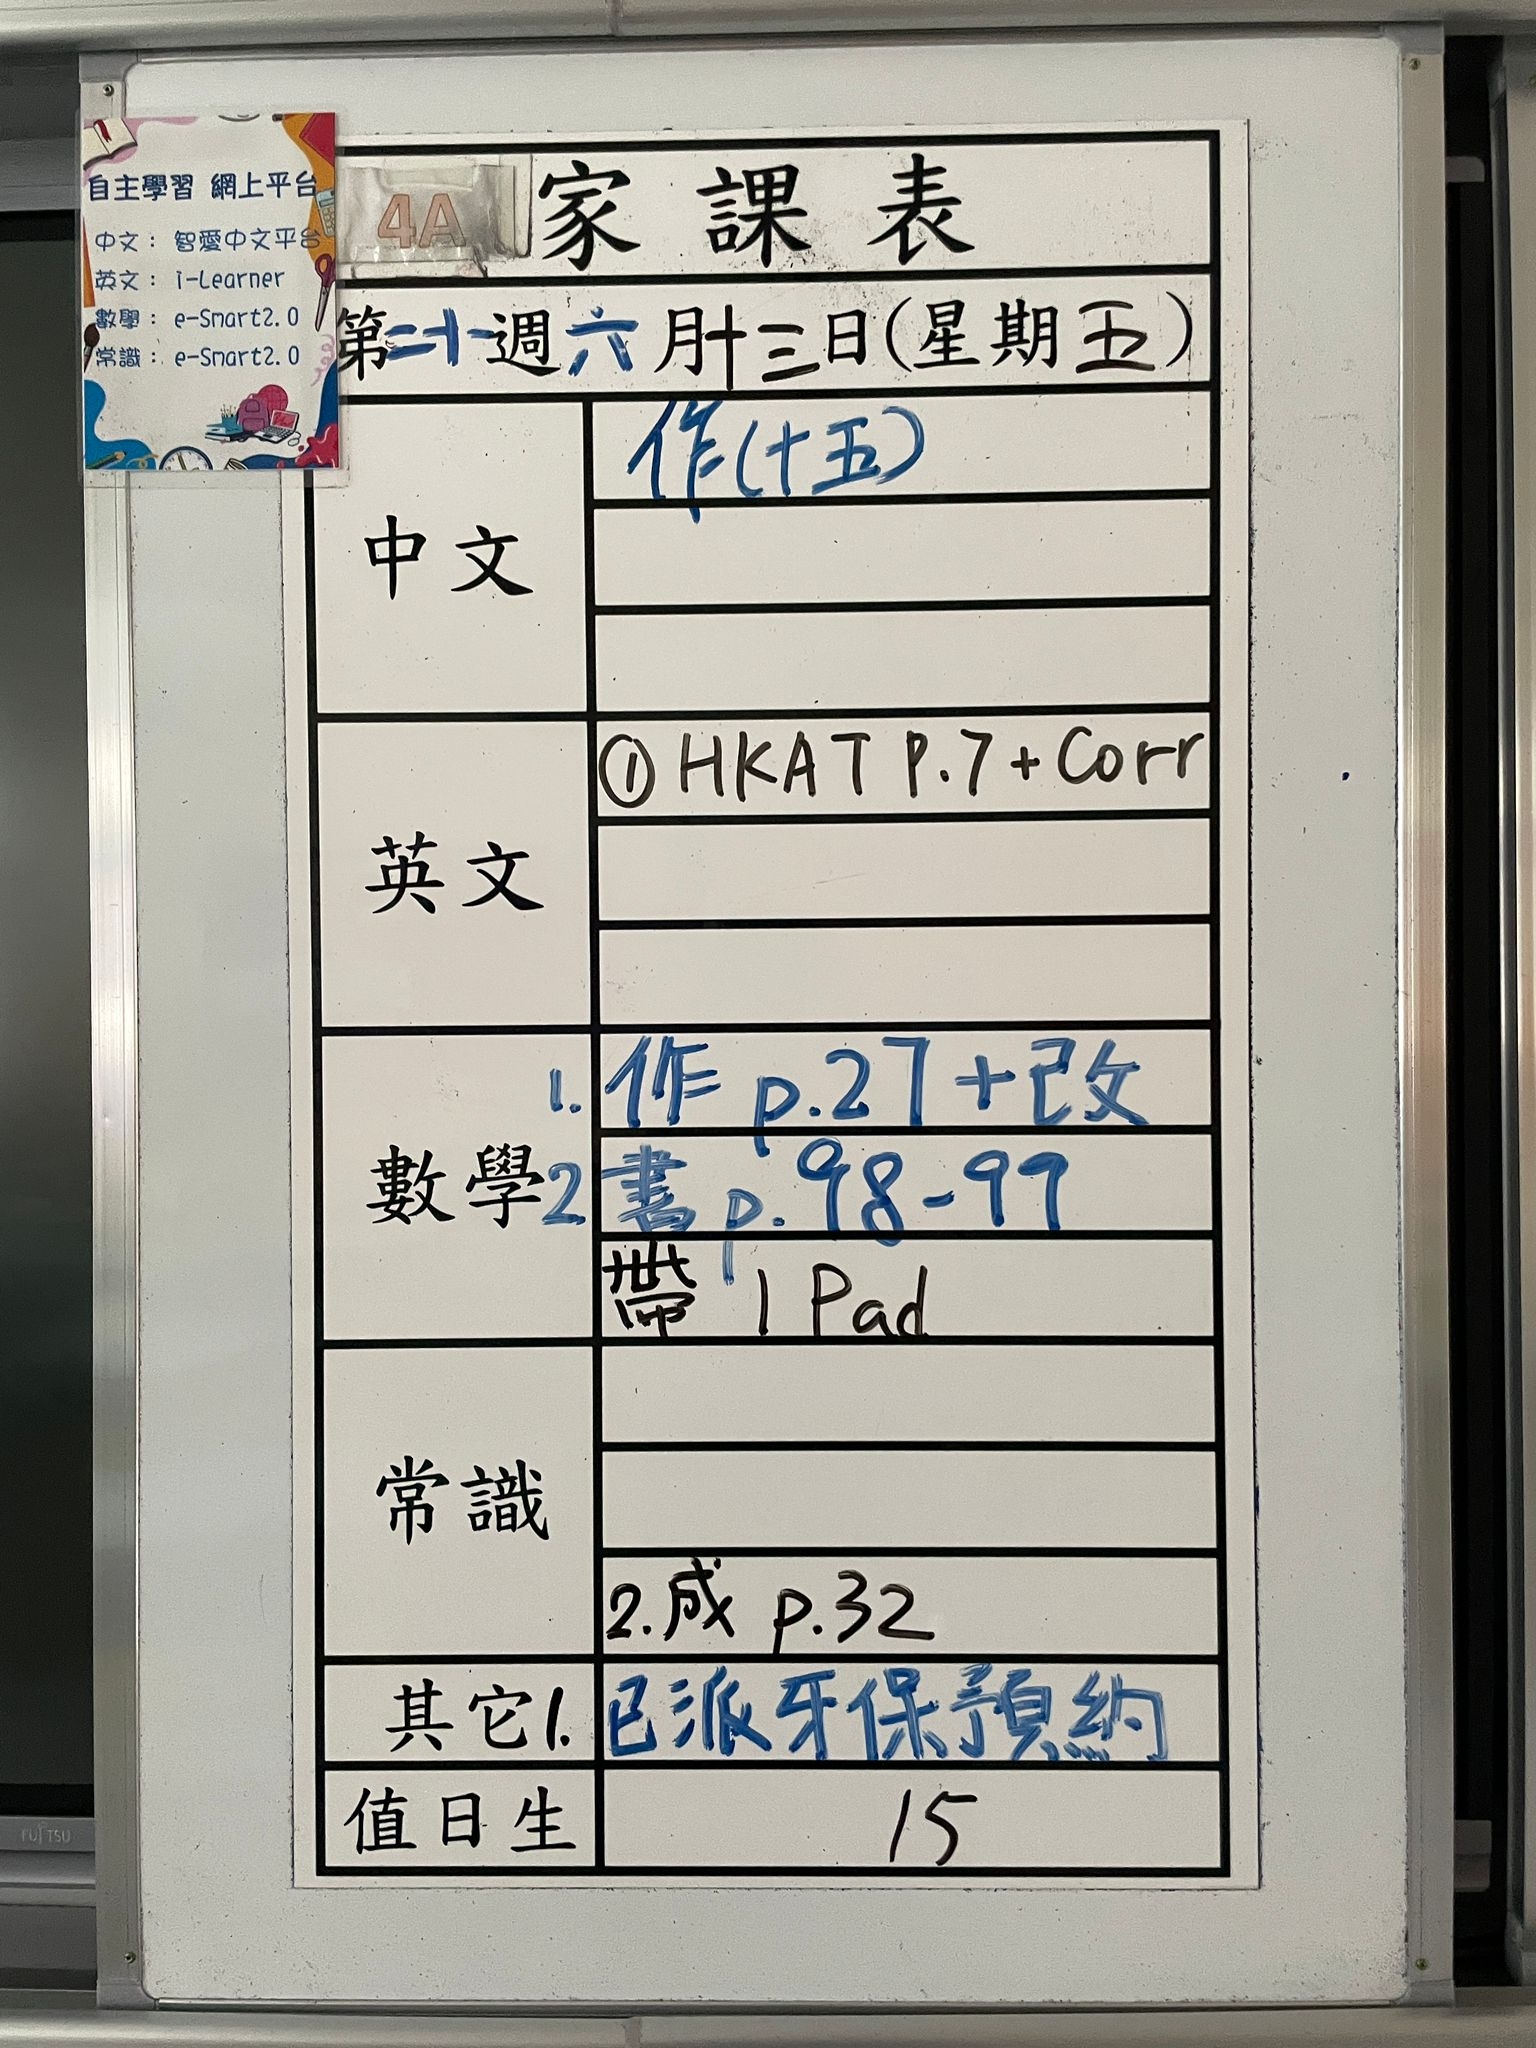 自主學習 網上平台
中文： 智愛中文平台
英文： i-Learner
數學： e-Smart2.0
常識： e-Smart2.0
4A 家課表
第二十週六月十三日(星期五)
中文
作(十五)
英文
① HKAT P.7 + Corr
數學
1. 作 p.27 + 改
2. 書 p.98-99
帶 IPad
常識
2. 成 p.32
其它 1. 已派牙保預約
值日生 15
FUJITSU